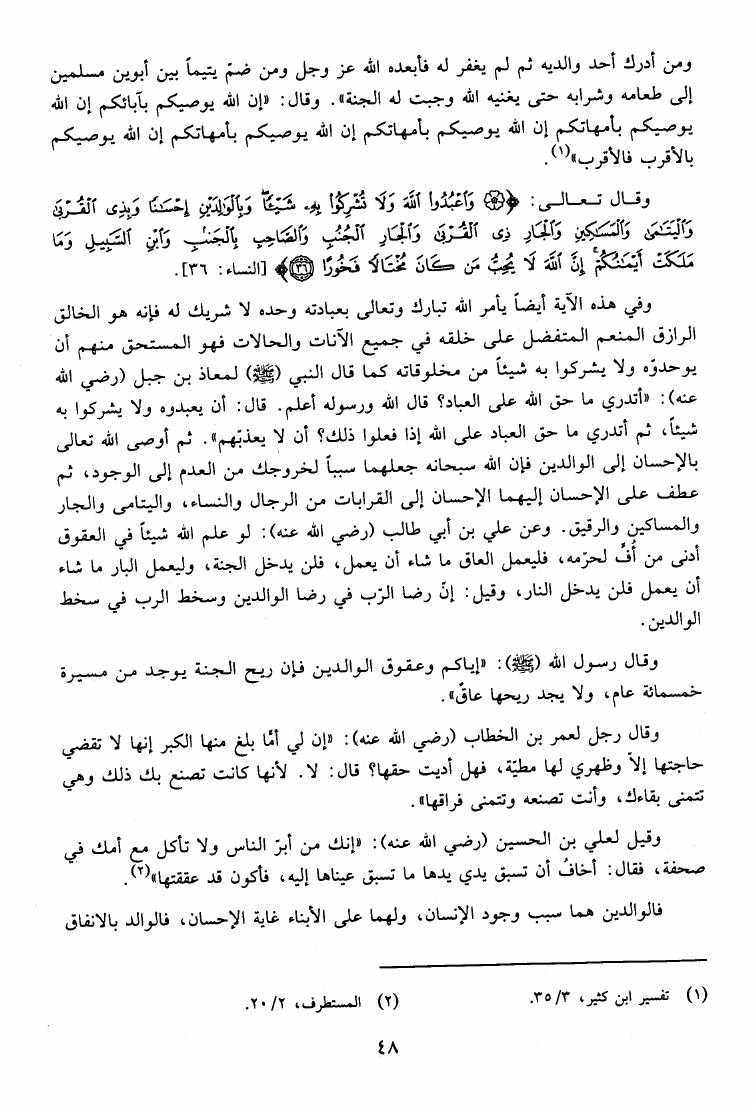 ومن أدرك أحد والديه ثم لم يغفر له فأبعده الله عز وجل ومن ضمّ يتيماً بين أبوين مسلمين
إلى طعامه وشرابه حتى يغنيه الله وجبت له الجنة». وقال: «إن الله يوصيكم بآبائكم إن الله
يوصيكم بأمهاتكم إن الله يوصيكم بأمهاتكم إن الله يوصيكم بأمهاتكم إن الله يوصيكم
بالأقرب فالأقرب»(١).
وقال تعالى: ﴿۞ وَاعْبُدُوا اللَّهَ وَلَا تُشْرِكُوا بِهِ شَيْئًا وَبِالْوَالِدَيْنِ إِحْسَانًا وَبِذِي الْقُرْبَى
وَالْيَتَامَى وَالْمَسَاكِينِ وَالْجَارِ ذِي الْقُرْبَى وَالْجَارِ الْجُنُبِ وَالصَّاحِبِ بِالْجَنْبِ وَابْنِ السَّبِيلِ وَمَا
مَلَكَتْ أَيْمَانُكُمْ إِنَّ اللَّهَ لَا يُحِبُّ مَن كَانَ مُخْتَالًا فَخُورًا ۝٣٦﴾ [النساء: ٣٦].
وفي هذه الآية أيضاً يأمر الله تبارك وتعالى بعبادته وحده لا شريك له فإنه هو الخالق
الرازق المنعم المتفضل على خلقه في جميع الآنات والحالات فهو المستحق منهم أن
يوحدوّه ولا يشركوا به شيئاً من مخلوقاته كما قال النبي (ﷺ) لمعاذ بن جبل (رضي الله
عنه): «أتدري ما حق الله على العباد؟ قال الله ورسوله أعلم. قال: أن يعبدوه ولا يشركوا به
شيئاً، ثم أتدري ما حق العباد على الله إذا فعلوا ذلك؟ أن لا يعذبّهم». ثم أوصى الله تعالى
بالإحسان إلى الوالدين فإن الله سبحانه جعلهما سبباً لخروجك من العدم إلى الوجود، ثم
عطف على الإحسان إليهما الإحسان إلى القرابات من الرجال والنساء، واليتامى والجار
والمساكين والرقيق. وعن علي بن أبي طالب (رضي الله عنه): لو علم الله شيئاً في العقوق
أدنى من أُفٍّ لحرّمه، فليعمل العاق ما شاء أن يعمل، فلن يدخل الجنة، وليعمل البار ما شاء
أن يعمل فلن يدخل النار، وقيل: إنّ رضا الرّب في رضا الوالدين وسخط الرب في سخط
الوالدين.
وقال رسول الله (ﷺ): «إياكم وعقوق الوالدين فإن ريح الجنة يوجد من مسيرة
خمسمائة عام، ولا يجد ريحها عاقٌ».
وقال رجل لعمر بن الخطاب (رضي الله عنه): «إن لي أمًّا بلغ منها الكبر إنها لا تقضي
حاجتها إلاّ وظهري لها مطيّة، فهل أديت حقها؟ قال: لا. لأنها كانت تصنع بك ذلك وهي
تتمنى بقاءك، وأنت تصنعه وتتمنى فراقها».
وقيل لعلي بن الحسين (رضي الله عنه): «إنك من أبرّ الناس ولا تأكل مع أمك في
صحفة، فقال: أخافُ أن تسبق يدي يدها ما تسبق عيناها إليه، فأكون قد عققتها»(٢).
فالوالدين هما سبب وجود الإنسان، ولهما على الأبناء غاية الإحسان، فالوالد بالانفاق
(١) تفسير ابن كثير، ٣/ ٣٥.
(٢) المستطرف، ٢/ ٢٠.
٤٨